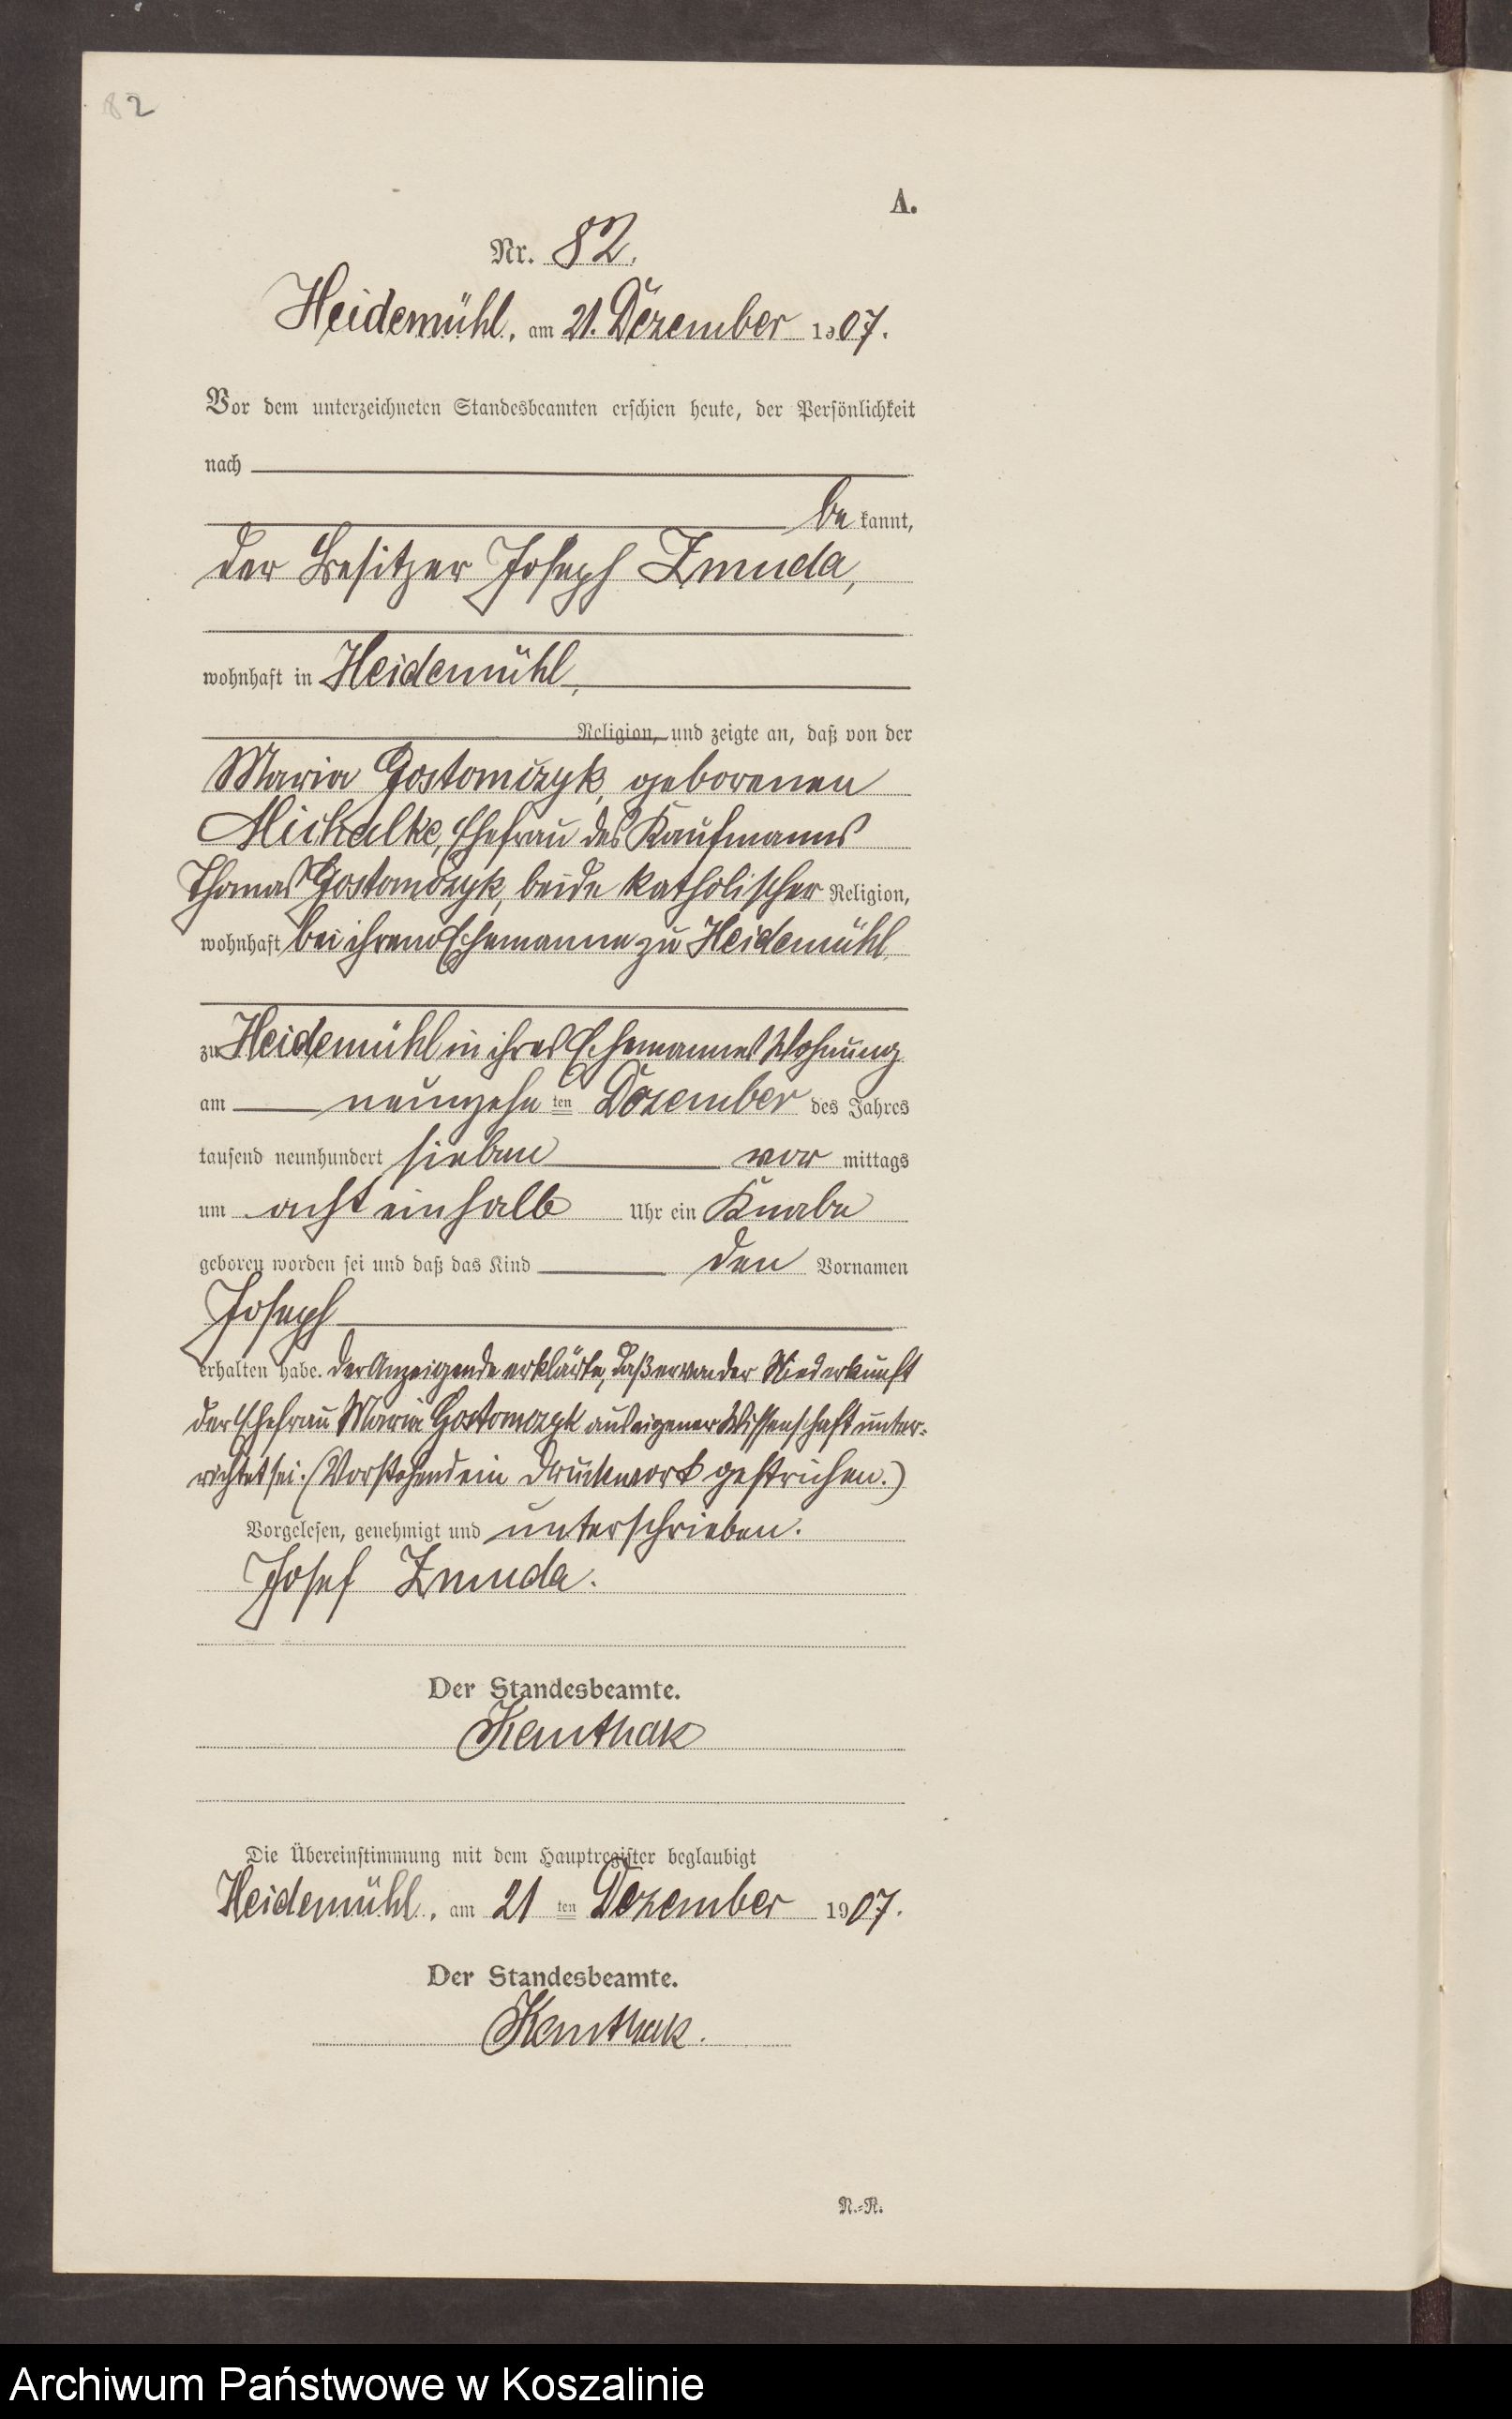 82
A.
Nr. 82.
Heidemühl, am 21. Dezember 1907.
Vor dem unterzeichneten Standesbeamten erschien heute, der Persönlichkeit
nach
be kannt,
der Besitzer Joseph Zmuda,
wohnhaft in Heidemühl,
Religion, und zeigte an, daß von der
Maria Gostomczyk, geborenen
Michalke, Ehefrau des Kaufmanns
Thomas Gostomczyk, beide katholischer Religion,
wohnhaft bei ihrem Ehemanne zu Heidemühl
zu Heidemühl in ihres Ehemannes Wohnung
am neunzehn ten Dezember des Jahres
tausend neunhundert sieben vor mittags
um acht einhalb Uhr ein Knabe
geboren worden sei und daß das Kind den Vornamen
Joseph
erhalten habe. Der Anzeigende erklärte, daß er von der Niederkunft
der Ehefrau Maria Gostomczyk aus eigener Wissenschaft unter-
richtet sei. (Vorstehend ein Druckwort gestrichen.)
Vorgelesen, genehmigt und unterschrieben.
Josef Zmuda.
Der Standesbeamte.
Kemthak
Die Übereinstimmung mit dem Hauptregister beglaubigt
Heidemühl, am 21 ten Dezember 1907.
Der Standesbeamte.
Kemthak.
N.=R.
Archiwum Państwowe w Koszalinie